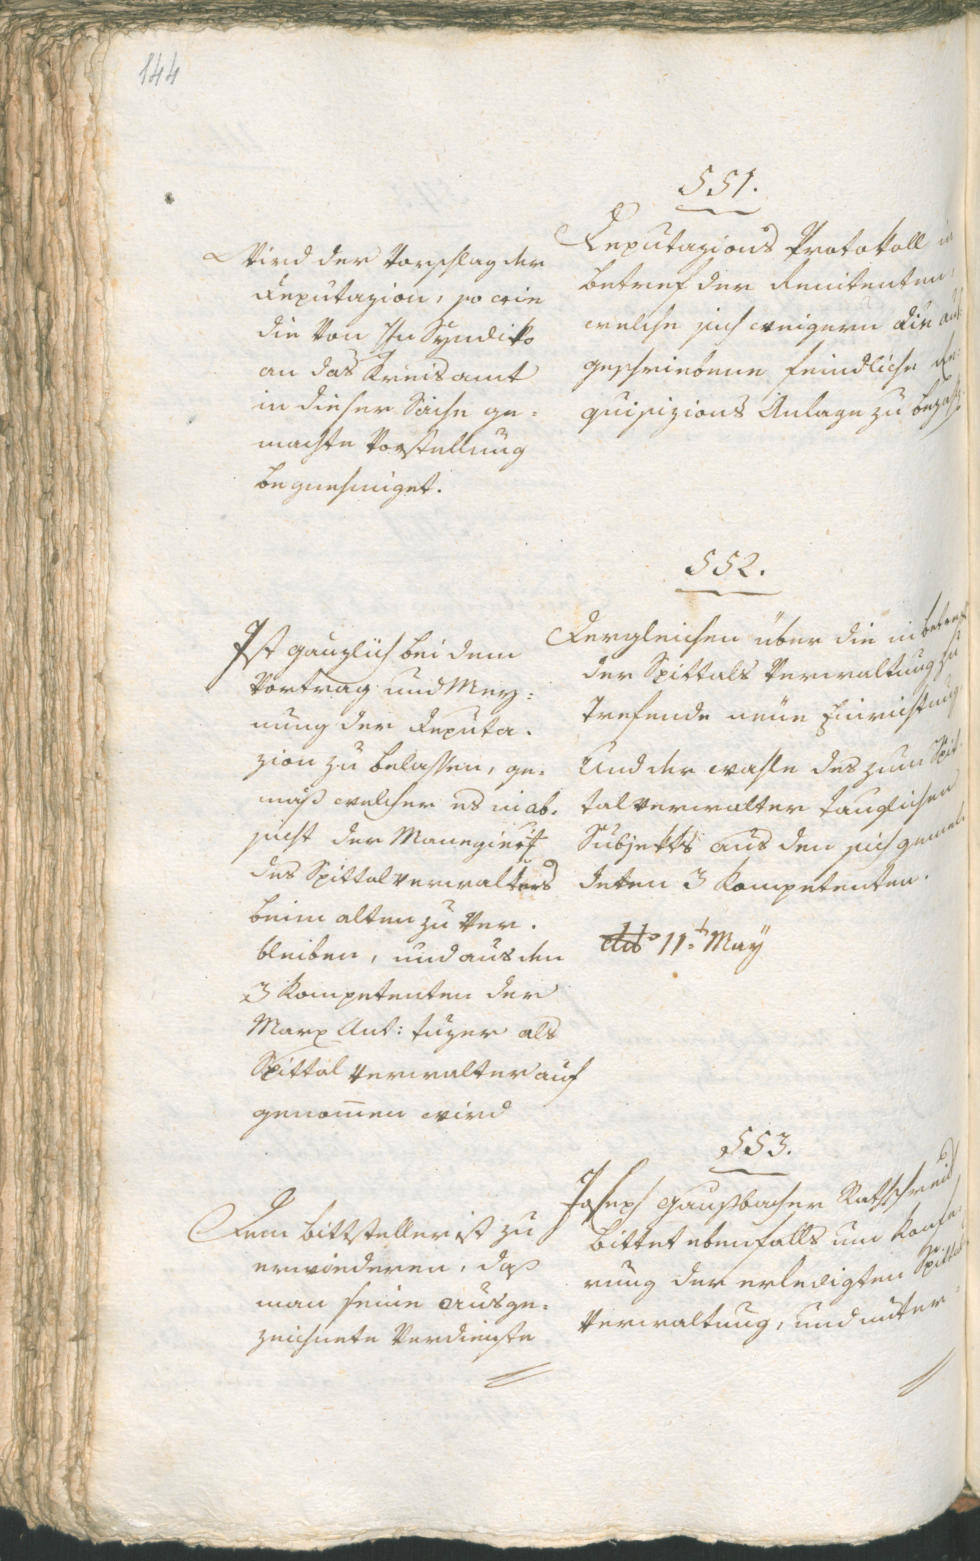 144
551.
Deputazions Protokoll in
betref der Renitenten,
welche sich weigern die aus
geschriebene feindliche Re=
quisizions Anlage zu bezahl
Wird der Vorschlag der
Deputazion, so wie
die von Hn Syndiko
an das Kreisamt
in dieser Sache ge=
machte Vorstellung
begnehmiget.
552.
Dergleichen über die in betref
der Spittals Verwaltung zu
trefende neüe Einrichtung
Und der wahle des zum Spit
talverwalter tauglichen
Subjekts aus den sich gemel
deten 3 Kompetenten.
11. May
Ist gänzlich bei dem
Vortrag und Mey=
nung der Deputa=
zion zu belassen, ge=
mäß welcher es in ab=
sicht der
des Spittalverwalters
beim alten zu ver=
bleiben, und aus den
3 Kompetenten der
Marx Ant: Tuzer als
Spittalverwalter auf
genom̅en wird
553.
Joseph Ratschreib
bittet ebenfalls um Konfe
rung der erledigten Spittal
Verwaltung, und unter=
Dem Bittsteller ist zu
erwiederen, daß
man seine ausge=
zeichnete Verdienste